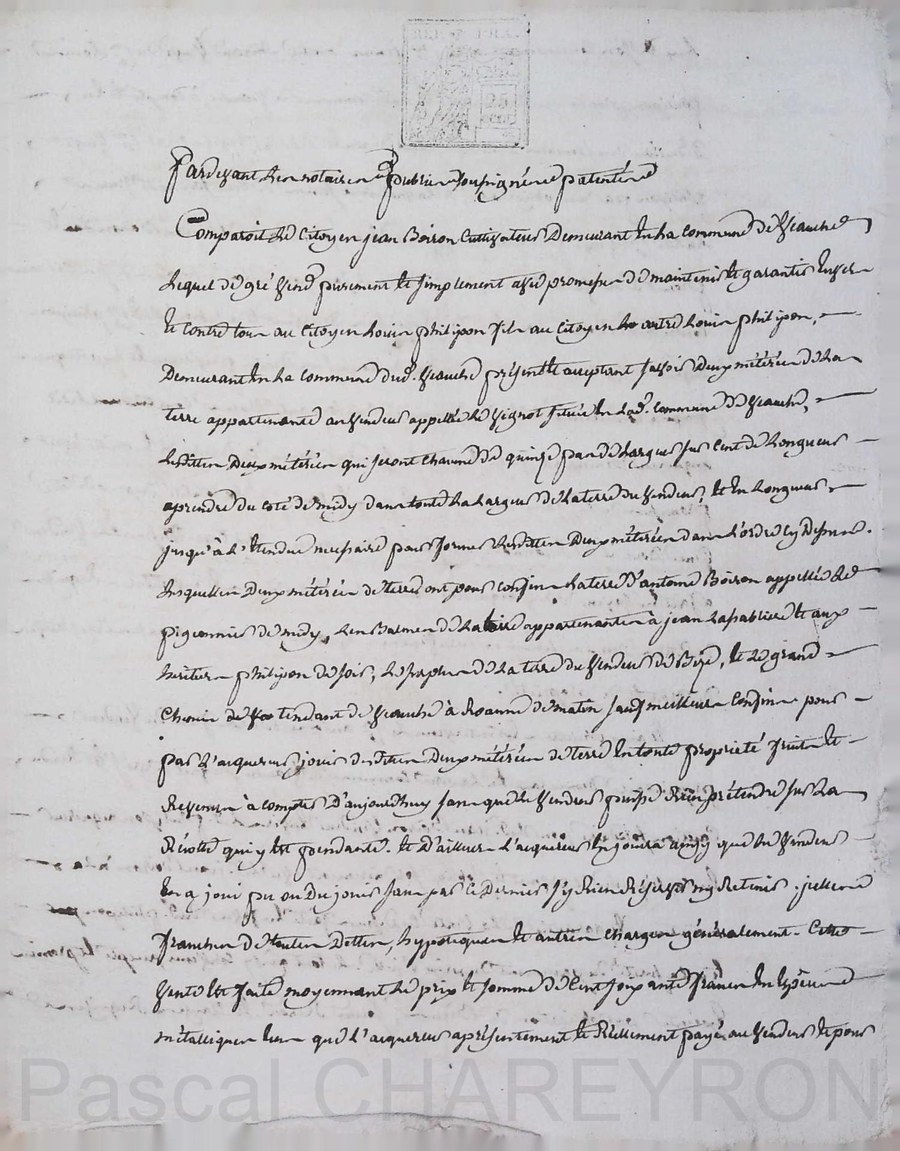 REP. FRA.
25
cent.
Pardevant les notaires publics soussignés patentés
Comparoit le Citoyen jean Boiron Cultivateur Demeurant En la commune de Veauche
Lequel de gré Vend purement et simplement avec promesse de maintenir et garantir Envers
Et Contre tous au Citoyen Louis philipon fils au Citoyen Louis philipon,
Demeurant En La commune dud. Veauche présent et acceptant savoir Deux métérées de La
terre appartenante au Vendeur appellée Le Vignot située En Lad. commune de Veauche,
Lesdittes Deux métérées qui seront Chacune de quinze pas de Largeur sur Cent de Longueur
aprendre du coté de midy dans toute La Largeur de La terre du Vendeur, et En Longueur
jusqu'à L'Etendue necessaire pour former Lesdittes Deux métérées dans L'ordre cy Dessus.
Lesquelles Deux métérées de terre ont pour confins La terre d'antoine Boiron appellée Le
pigeonnier de midy, Les Balmes de La terre appartenantes à jean Lapalisse et aux
héritiers philipon de soir, Le surplus de La terre du Vendeur de Bize, et Le grand
Chemin tendant de Veauche à Roanne de matin sauf meilleurs Confins pour
par L'acquereur jouir desdittes Deux métérées de terre En toute propriété fruits et
Revenus à compter D'aujourdhuy sans que Le Vendeur puisse Rien prétendre sur La
Récolte qui y Est pendante. Et d'ailleurs L'acquereur En jouira ainsy que Le Vendeur
En a joui pu ou Du jouir sans par Ce Dernier s'y Rien Réserver ny Retenir.
franches de toutes Dettes, hypoteques et autres Charges généralement. Cette
Vente Est faite moyennant Le prix et somme de Cent soixante francs En Espèces
métalliques que L'acquereur a présentement et Réellement payé au Vendeur et pour
Pascal CHAREYRON